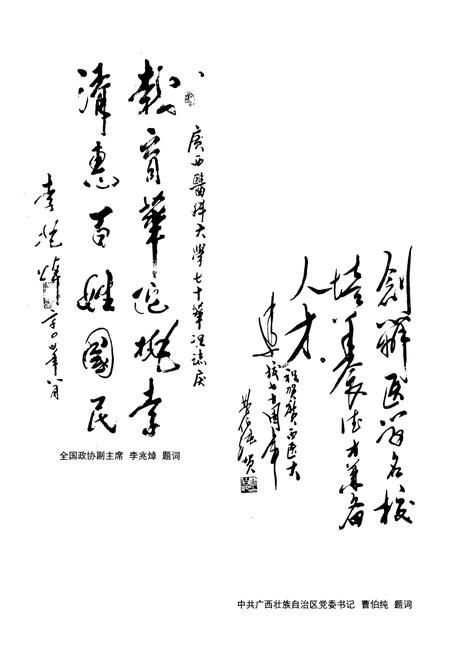 廣西醫科大學七十華誕誌慶
育華桃李
惠百姓國民
李兆焯
八月
全国政协副主席 李兆焯 题词
创办医学名校
培养德才兼备
人才
祝贺广西医大
建校七十周年
曹伯纯
中共广西壮族自治区党委书记 曹伯纯 题词